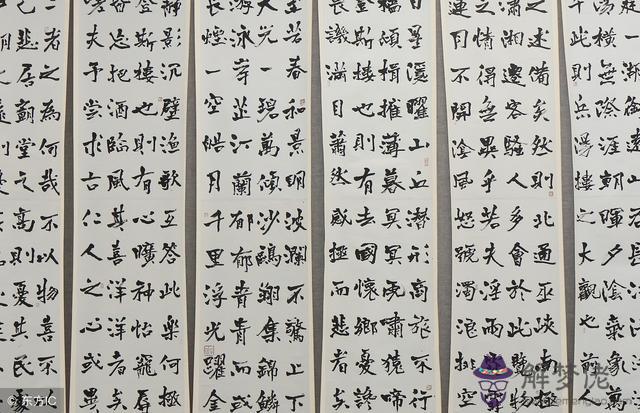 一湖銜遠山吞長江浩浩湯
橫無際涯朝暉夕陰氣象萬
千此則岳陽樓之大觀也前
之述備矣然則北通巫峽南極
瀟湘遷客騷人多會於此覽物
之情得無異乎若夫淫雨霏
連月不開陰風怒號濁浪排空
星隱曜山丘潛形商旅不行
檣傾楫摧薄暮冥冥虎嘯猿啼
登斯樓也則有去國懷鄉憂讒
畏譏滿目蕭然感極而悲者矣
至若春和景明波瀾不驚上下
天光一碧萬頃沙鷗翔集錦鱗
游泳岸芷汀蘭郁郁青青而或
長煙一空皓月千里浮光躍金
靜影沉璧漁歌互答此樂何極
登斯樓也則有心曠神怡寵辱
忘把酒臨風其喜洋洋者矣
夫予嘗求古仁人之心或異
二者之為何哉不以物喜不
己悲居廟堂之高則憂其民
©东方IC
解梦佬